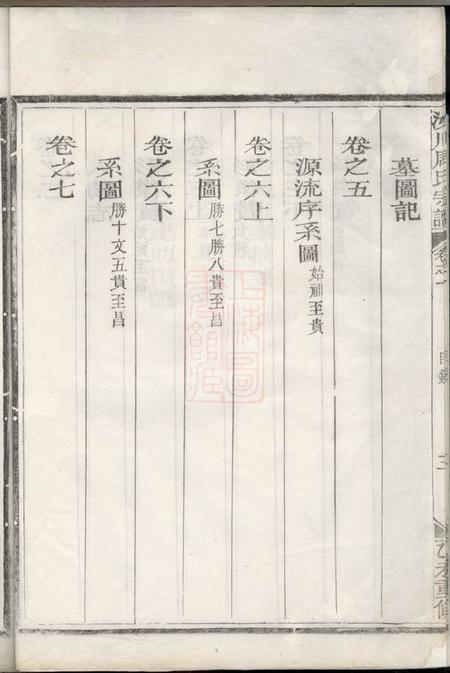 墓圖記
卷之五
源流序系圖 始祖至貴
卷之六上
系圖 勝七勝八貴至昌
卷之六下
系圖 勝十文五貴至昌
卷之七
周氏宗譜
卷之一
目錄
乙未重修
上海圖書館藏